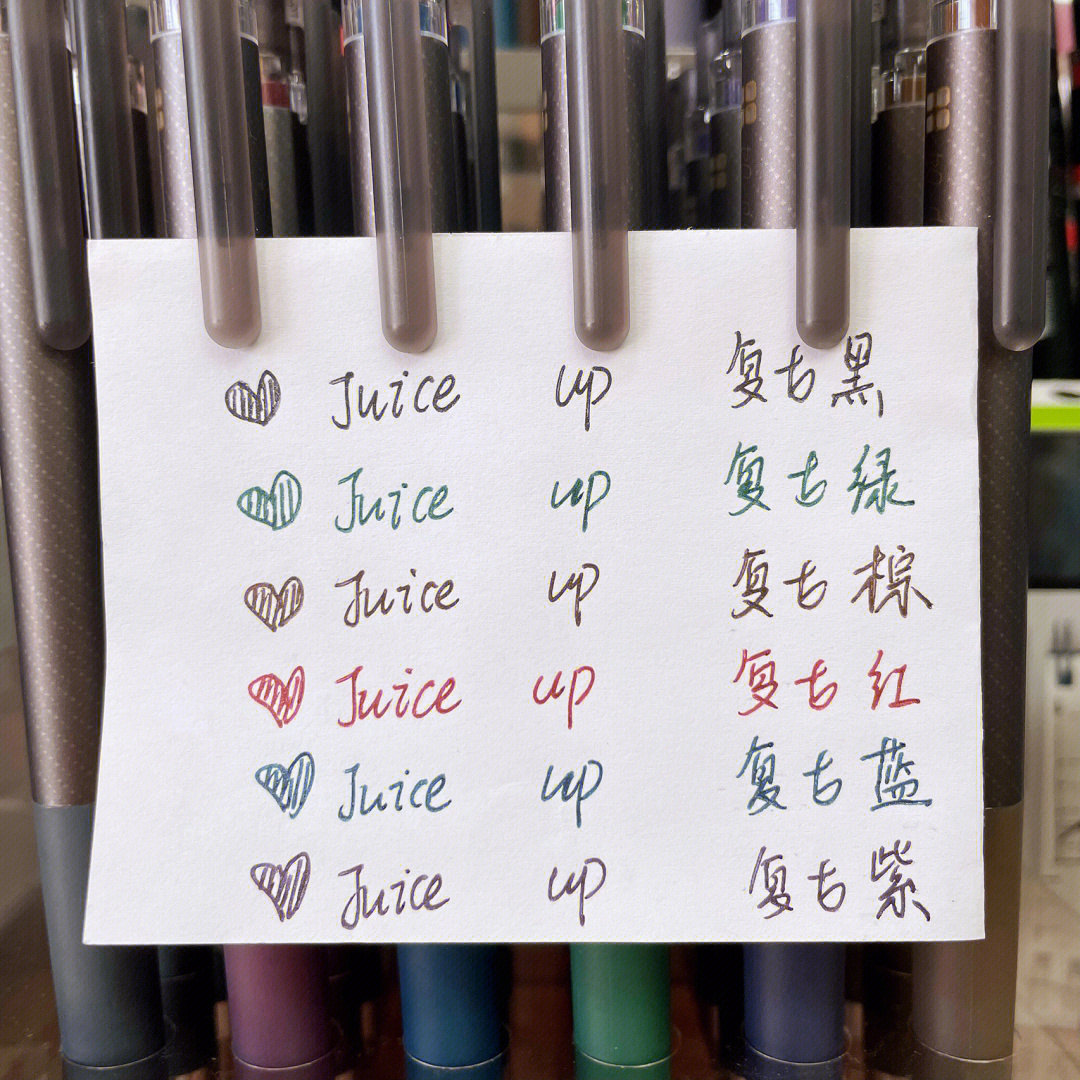 Juice up 复古黑
Juice up 复古绿
Juice up 复古棕
Juice up 复古红
Juice up 复古蓝
Juice up 复古紫